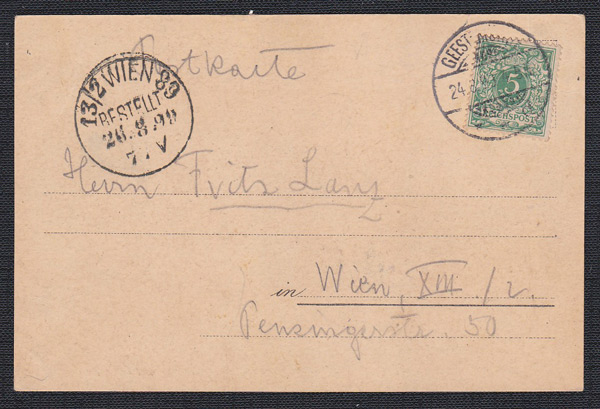 Postkarte
13/2 WIEN 89
BESTELLT
26.8.99
7. V
GEEST
24.8
5
REICHSPOST
Herrn Fritz Lanz
in Wien, XIII /2.
Penzingerstr. 50